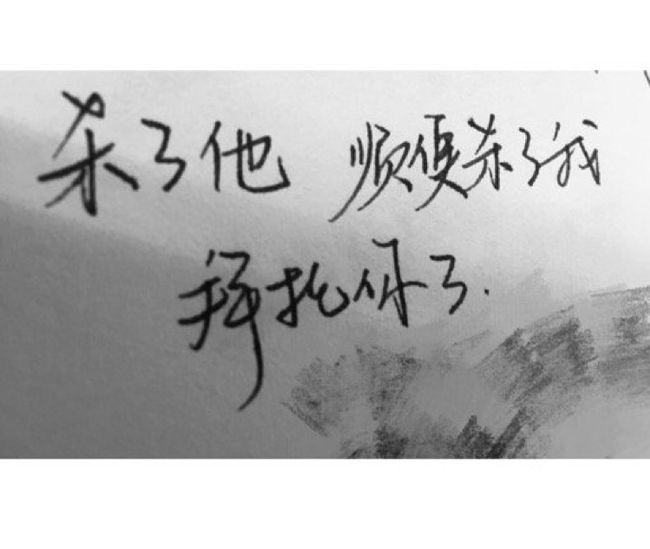 杀了他 顺便杀了我
拜托你了.